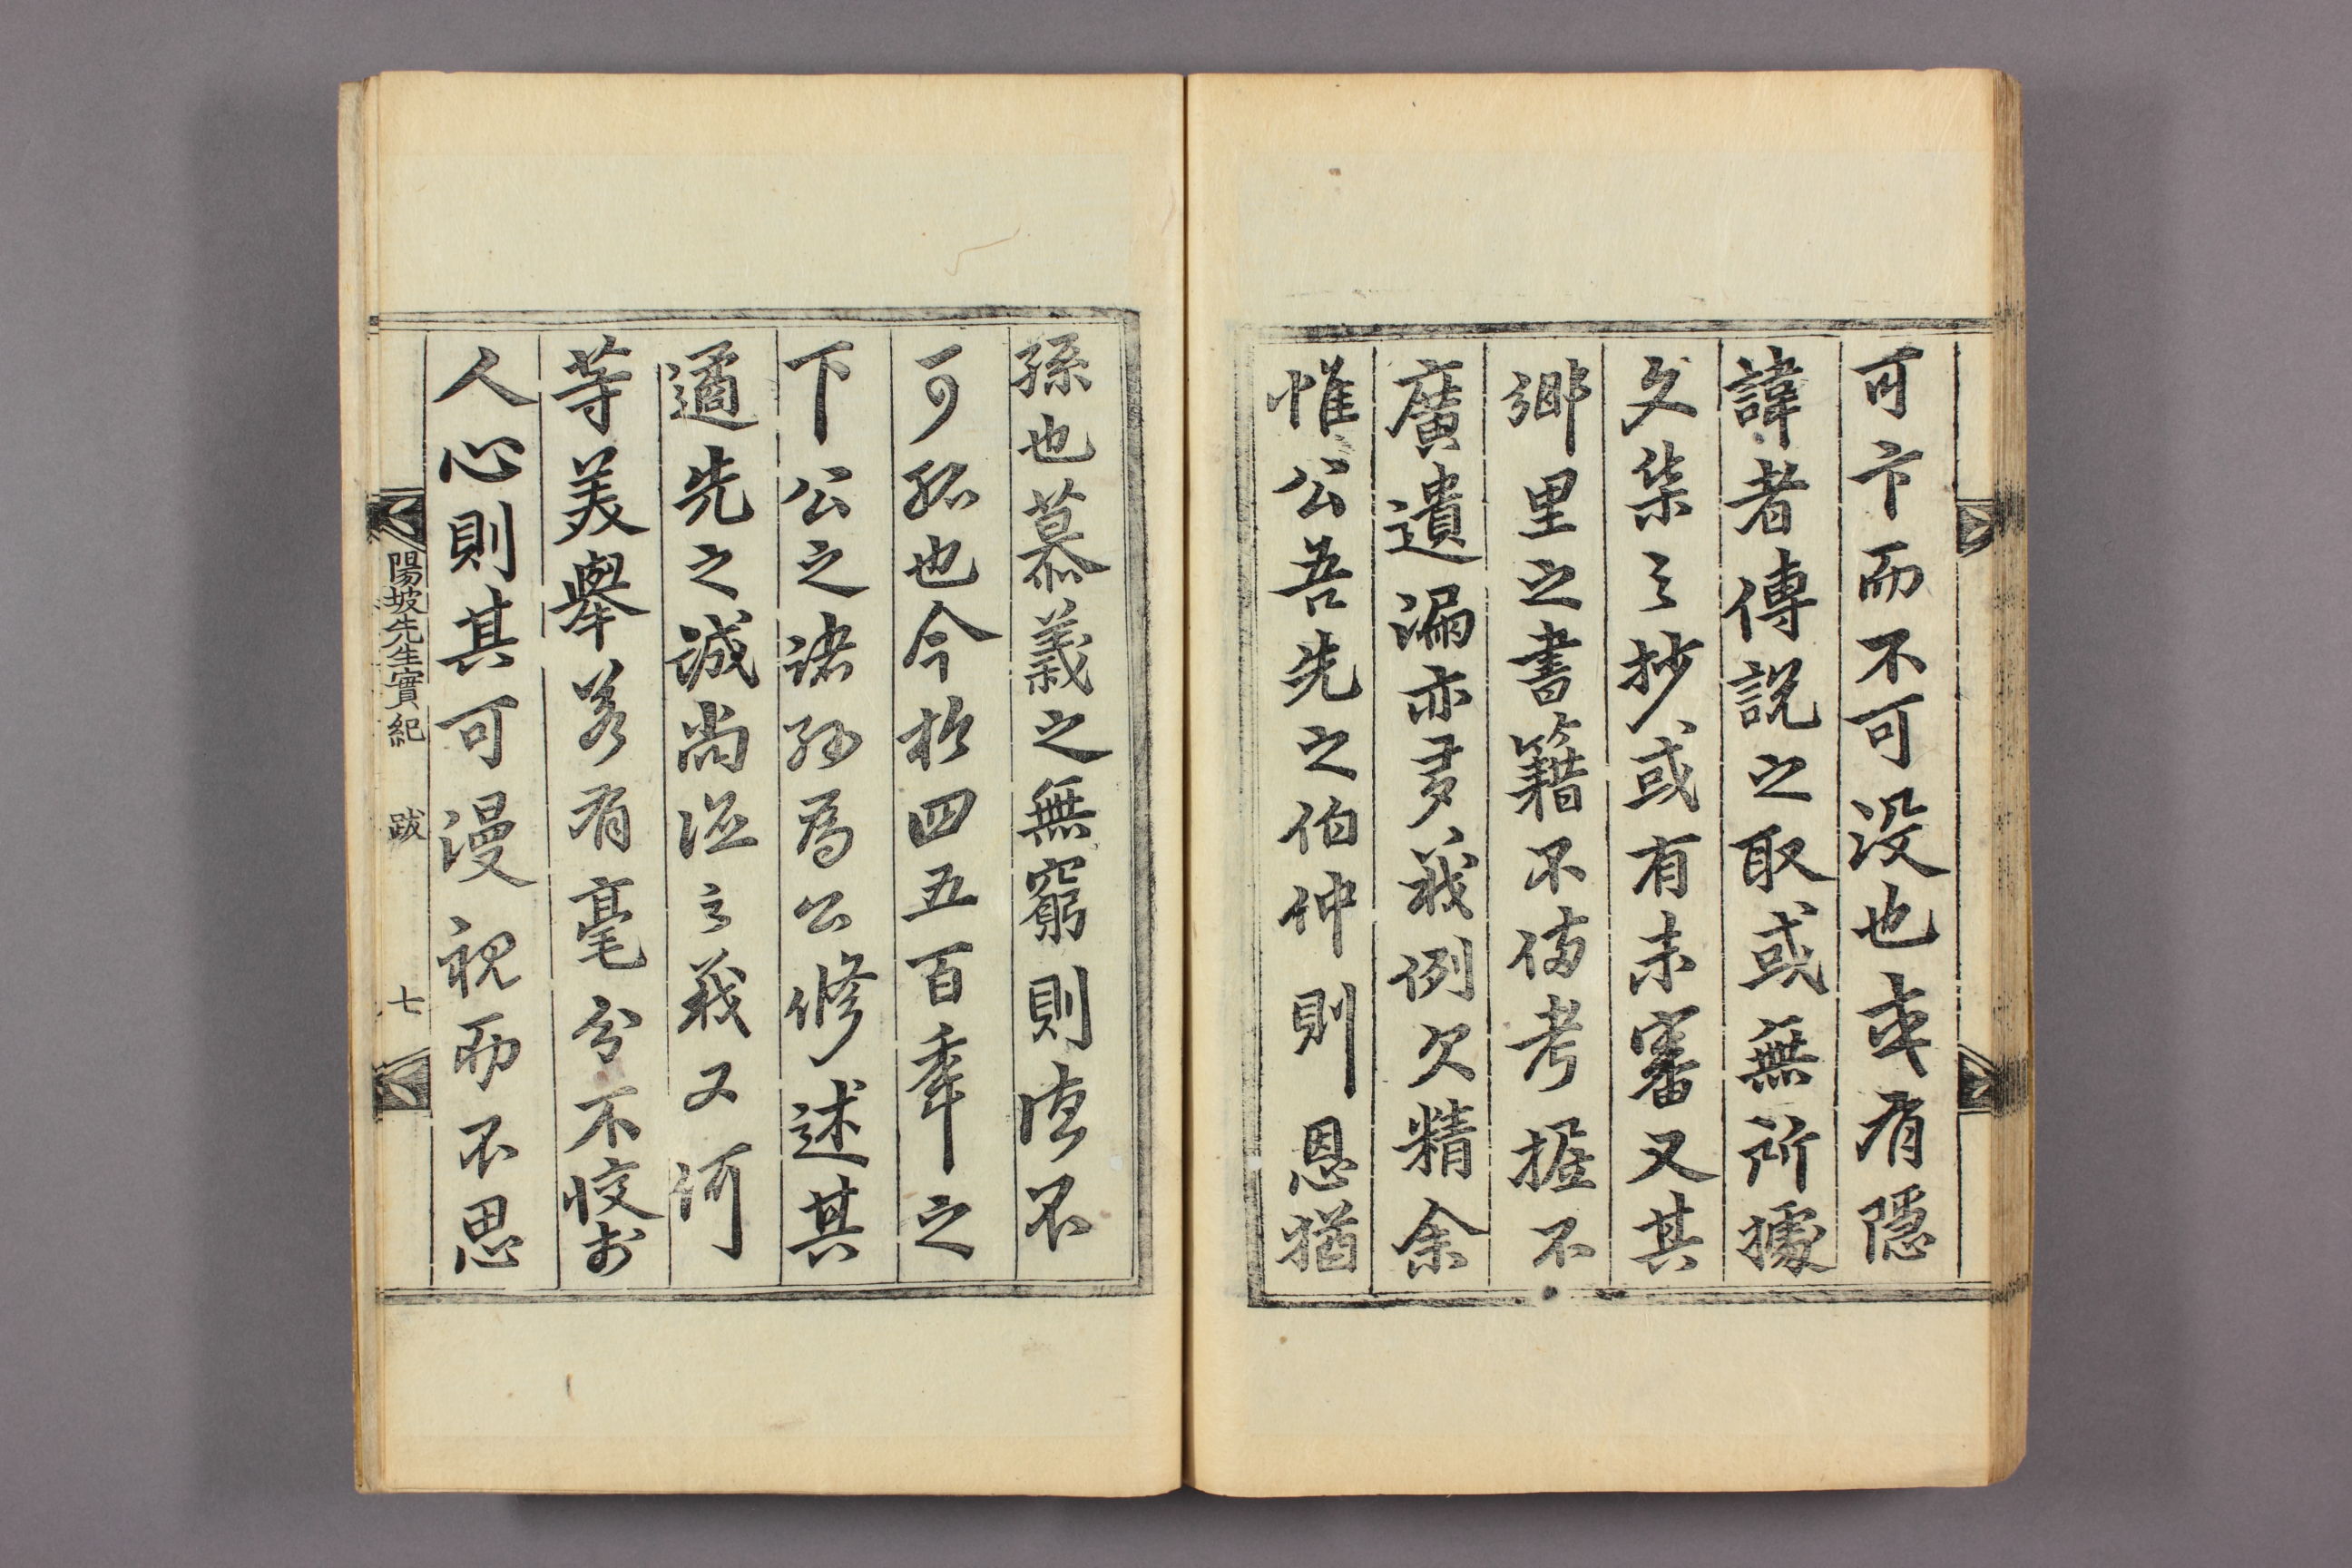 可卞而不可沒也或有隱
諱者傳說之取或無所據
文集之抄或有未審又其
鄉里之書籍不備考據不
廣遺漏亦多義例欠精余
惟公吾先之伯仲則恩猶
孫也慕義之無窮則法不
可孤也今於四五百年之
下公之諸孫為公修述其
遹先之誠尚從之義又何
等美舉若有毫分不恔於
人心則其可漫視而不思
陽坡先生實紀 跋 七